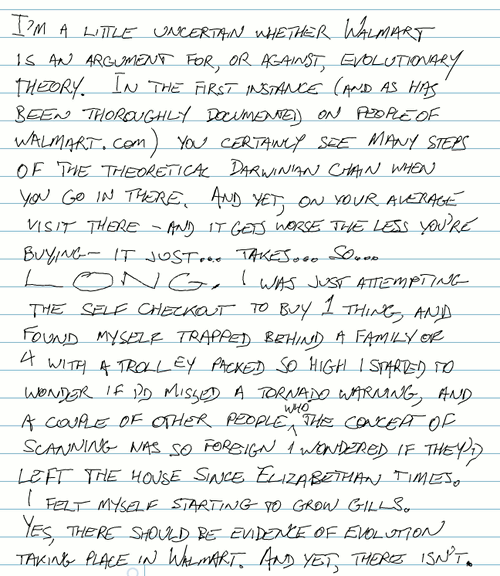 I'M A LITTLE UNCERTAIN WHETHER WALMART
IS AN ARGUMENT FOR, OR AGAINST, EVOLUTIONARY
THEORY. IN THE FIRST INSTANCE (AND AS HAS
BEEN THOROUGHLY DOCUMENTED ON PEOPLE OF
WALMART.COM) YOU CERTAINLY SEE MANY STEPS
OF THE THEORETICAL DARWINIAN CHAIN WHEN
YOU GO IN THERE. AND YET, ON YOUR AVERAGE
VISIT THERE - AND IT GETS WORSE THE LESS YOU'RE
BUYING - IT JUST... TAKES... SO...
LONG. I WAS JUST ATTEMPTING
THE SELF CHECKOUT TO BUY 1 THING, AND
FOUND MYSELF TRAPPED BEHIND A FAMILY OF
4 WITH A TROLLEY PACKED SO HIGH I STARTED TO
WONDER IF I'D MISSED A TORNADO WARNING, AND
A COUPLE OF OTHER PEOPLE, WHO THE CONCEPT OF
SCANNING WAS SO FOREIGN I WONDERED IF THEY'D
LEFT THE HOUSE SINCE ELIZABETHAN TIMES.
I FELT MYSELF STARTING TO GROW GILLS.
YES, THERE SHOULD BE EVIDENCE OF EVOLUTION
TAKING PLACE IN WALMART. AND YET, THERE ISN'T.